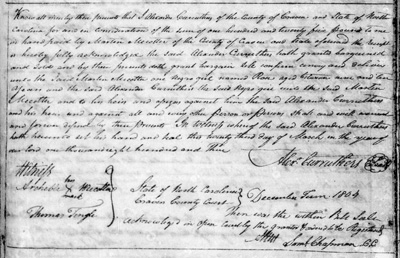 Know all men by these presents that I Alexander Carruthers of the County of Craven and State of North
Carolina for and in consideration of the sum of one hundred and twenty five pounds to me
in hand paid by Martin of the County of Craven and State aforesaid the receipt
is hereby fully acknowledged the said Alexander Carruthers hath granted bargained
and sold and by these presents doth grant bargain sell confirm convey and deliver
unto the said Martin one Negro girl named Rose aged Eleven
the said Alexander Carruthers the said Negro girl unto the said Martin
and to his heirs and assigns against from the said Alexander Carruthers
and his heirs and against all and every other person or persons shall and will warrant
and forever defend by these presents In Witness whereof the said Alexander Carruthers
hath hereunto set his hand and seal this twenty third day of March in the year of
our Lord one thousand eight hundred and three
Alex Carruthers
Witness
his
mark
Thomas Tingle
State of North Carolina
Craven County Court
December Term 1804
Then was the within Bill Sale
acknowledged in open Court by the grantor & ordered to be Registered
Attest
Saml Chapman CC